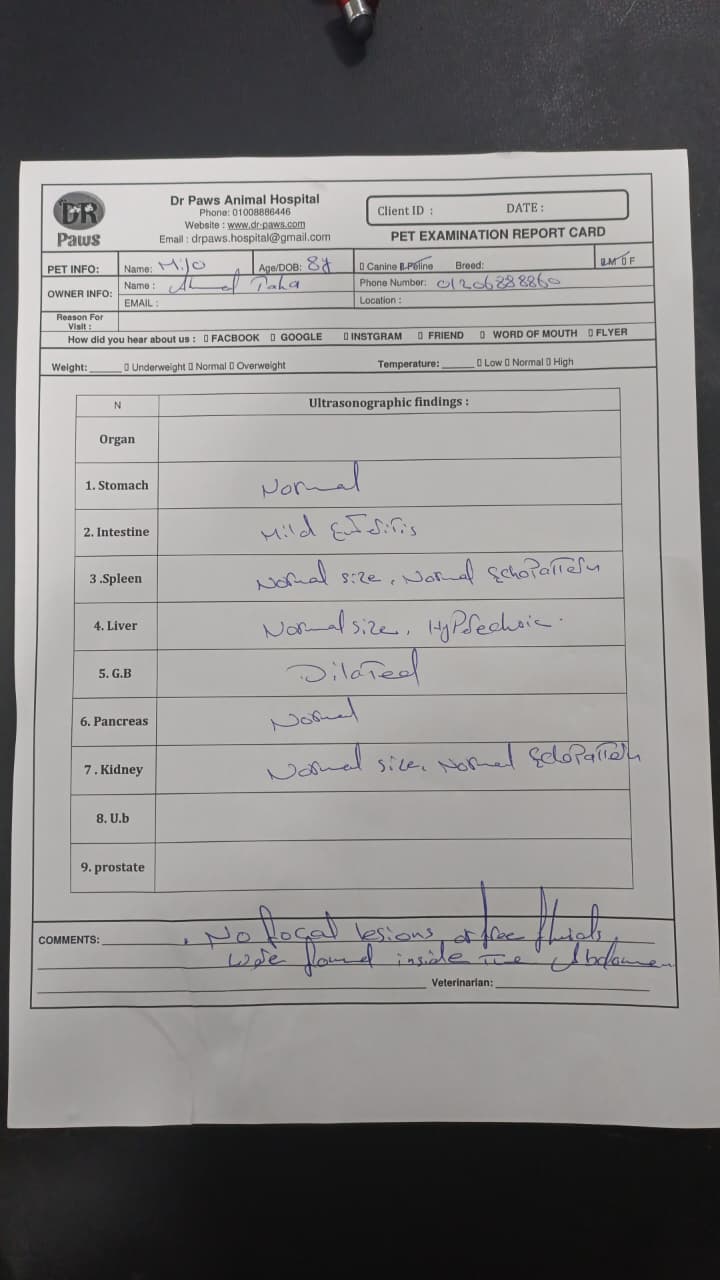 DR
Paws
Dr Paws Animal Hospital
Phone: 01008886446
Website : www.dr-paws.com
Email : drpaws.hospital@gmail.com
Client ID :
DATE :
PET EXAMINATION REPORT CARD
PET INFO: Name: Milo Age/DOB: 8y Canine Feline Breed: M F
OWNER INFO: Name : Ahmed Taha Phone Number: 01206888860
EMAIL : Location :
Reason For
Visit :
How did you hear about us : FACBOOK GOOGLE INSTGRAM FRIEND WORD OF MOUTH FLYER
Weight: Underweight Normal Overweight Temperature: Low Normal High
N Ultrasonographic findings :
Organ
1. Stomach Normal
2. Intestine Mild Enteritis
3 .Spleen Normal size, Normal Echopattern
4. Liver Normal size, Hyperechoic.
5. G.B Dilated
6. Pancreas Normal
7 . Kidney Normal size, Normal Echopattern
8. U.b
9. prostate
COMMENTS: . No focal lesions or free fluids
were found inside The Abdomen
Veterinarian: